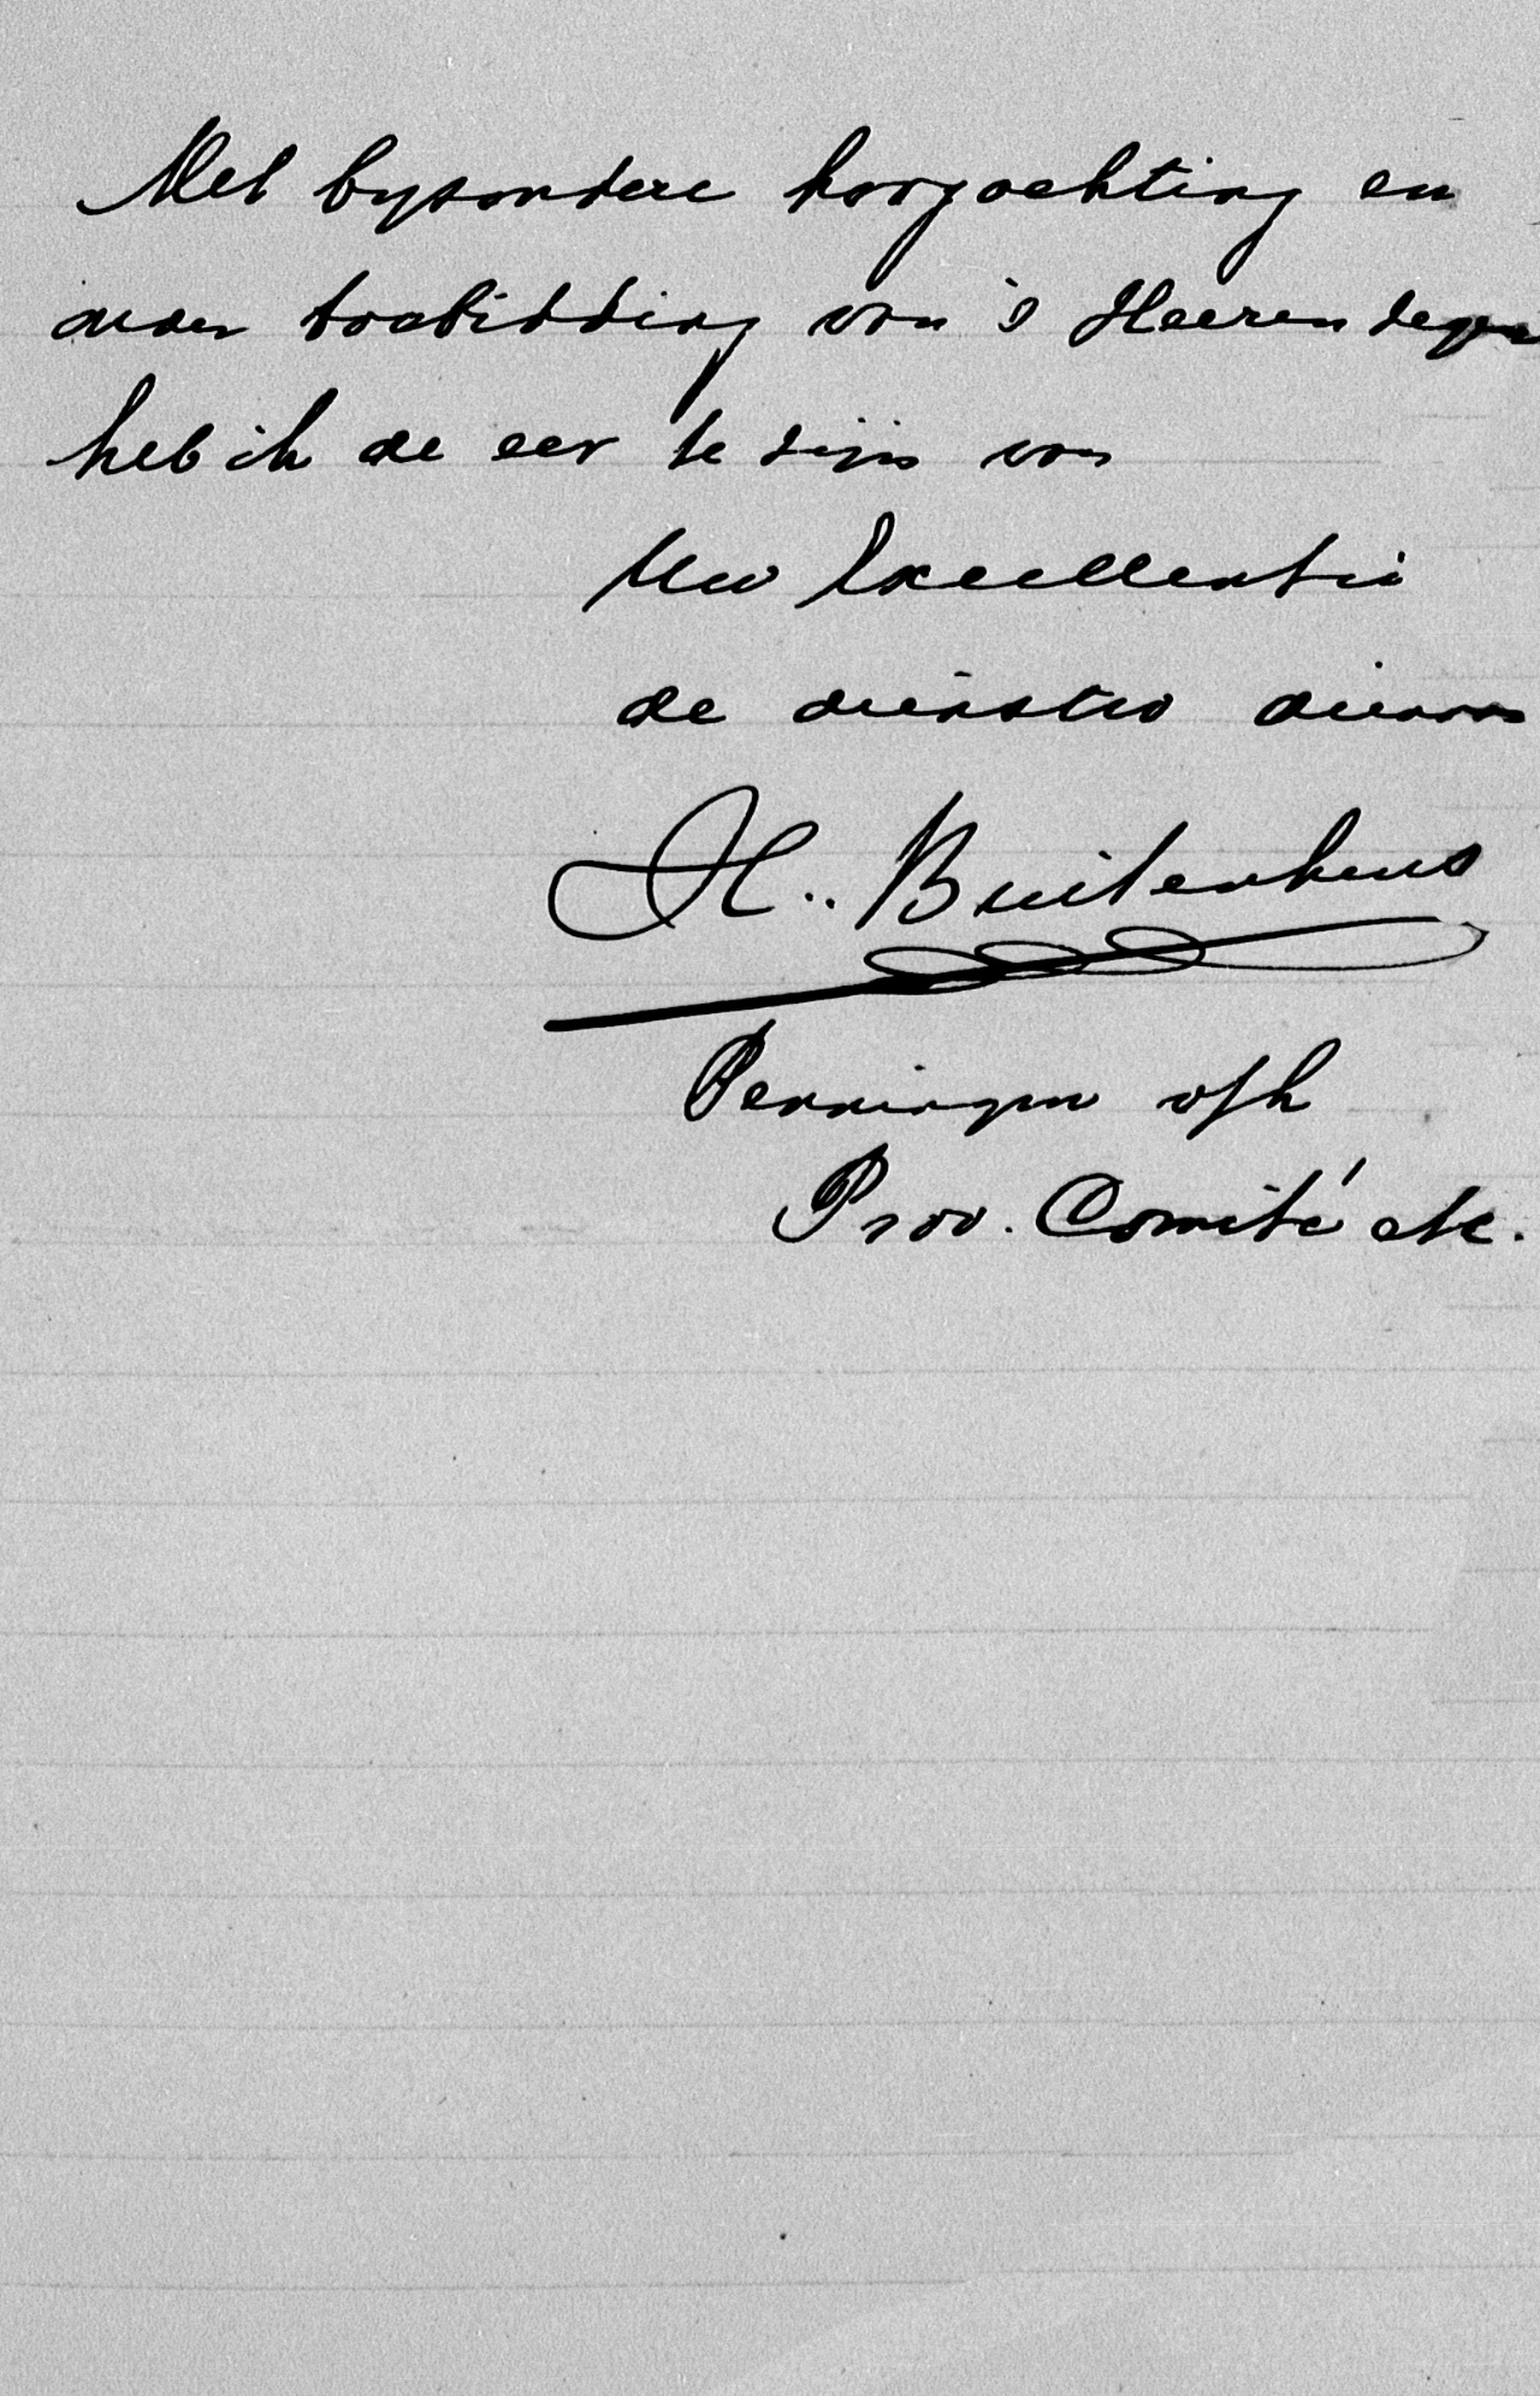 Met byzondere hoogachting en
onder toebidding van 's Heeren zegen
heb ik de eer te zijn van
Uw Excellentie
de dienstw dienaar
H. Buitenhuis
Penningm v/h
Prov. Comité etc.